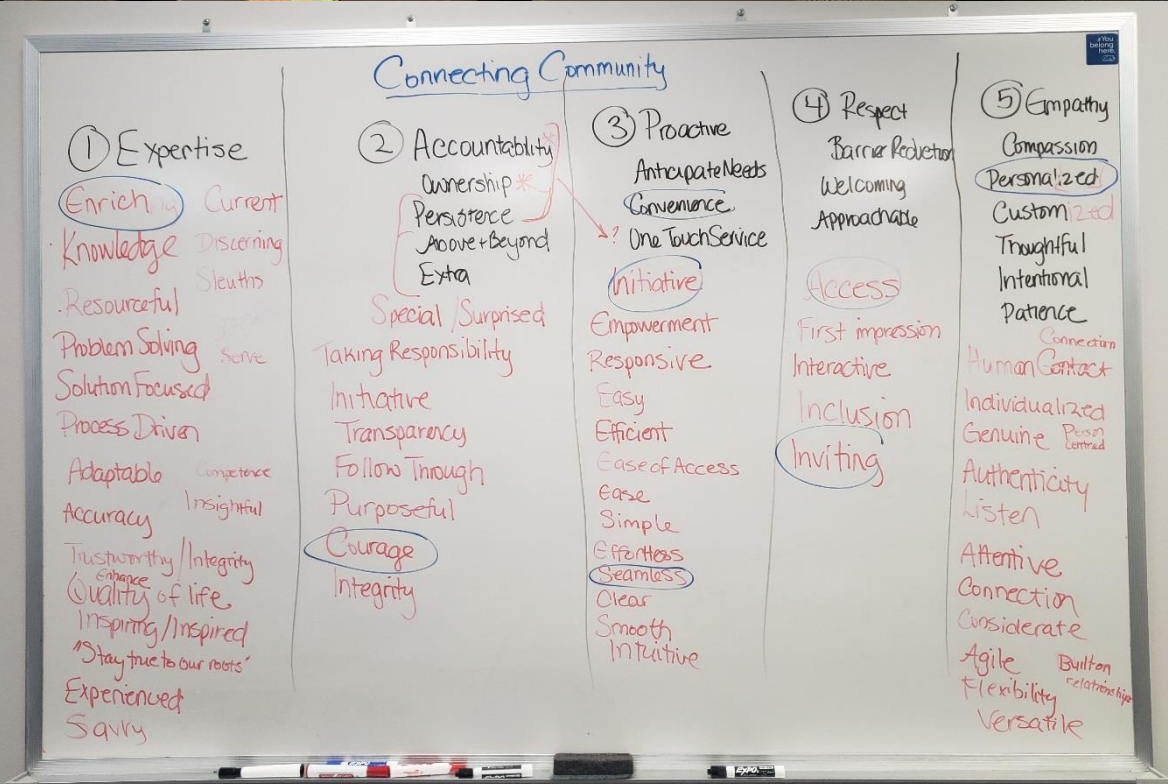 #You
belong
here.
Connecting Community
① Expertise
Enrich
Current
Knowledge
Discerning
Sleuths
Resourceful
Problem Solving
Serve
Solution Focused
Process Driven
Adaptable
Competence
Insightful
Accuracy
Trustworthy/Integrity
Enhance
Quality of life
Inspiring/Inspired
"Stay true to our roots"
Experienced
Savvy
② Accountability
Ownership *
Persistence
Above + Beyond
Extra
Special/Surprised
Taking Responsibility
Initiative
Transparency
Follow Through
Purposeful
Courage
Integrity
③ Proactive
Anticipate Needs
Convenience
? One Touch Service
Initiative
Empowerment
Responsive
Easy
Efficient
Ease of Access
Ease
Simple
Effortless
Seamless
Clear
Smooth
Intuitive
④ Respect
Barrier Reduction
Welcoming
Approachable
Access
First impression
Interactive
Inclusion
Inviting
⑤ Empathy
Compassion
Personalized
Customized
Thoughtful
Intentional
Patience
Connection
Human Contact
Individualized
Genuine
Person
centred
Authenticity
Listen
Attentive
Connection
Considerate
Agile
Built on
relationships
Flexibility
Versatile
EXPO
EXPO